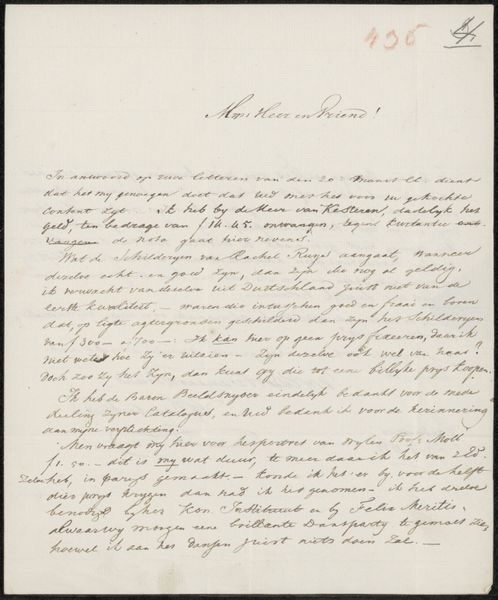 436
Mijn Heer en Vriend!
In antwoord op uwe letteren van den 20 Maart ll. dient
dat het my genoegen doet dat UEd met het voor uw gekochte
content zyt. Ik heb by de Heer van Kesteren, dadelyk het
geld, ten bedrage van ƒ 14.45. ontvangen, tegen kwitantie
de nota gaat hier nevens.
Wat de Schilderyen van Rachel Ruysch aangaat, wanneer
dezelve echt en goed zyn, dan zyn ze nog al geldig,
ik verwacht van dezelve uit Duitschland juist niet van de
eerste kwaliteit – waren die intusschen goed en fraai en boven
dat, op ligte agtergronden geschilderd dan zyn het Schilderyen
van ƒ 300 – a 700 – Ik kan hier op geen prys fixeeren, daar ik
niet weet hoe zy er uitzien – Zyn dezelve ook wel van haar?
Doch zoo zy het zyn, dan kunt gy die tot een billyke prys koopen.
Ik heb de Baron Beeldsnyder eindelyk bedankt voor de mede
deeling zyner Catalogus, en UEd bedank ik voor de herinnering
aan myne verpligting.
Men vraagt my hier voor het van wylen Prof: Moll
ƒ 1.50. – dit is my wat duur, te meer daar ik het van
heb, in parys gemaakt – konde ik het er by voor de helft
dies prys krygen dan had ik het genomen – ik heb dezelve
benoodigd by het Kon. Instituut en by Felix Meritis,
alwaar wy morgen eene brillante Danspartij te gemoet zien,
hoewel ik aan het dansen juist niets doen zal. –